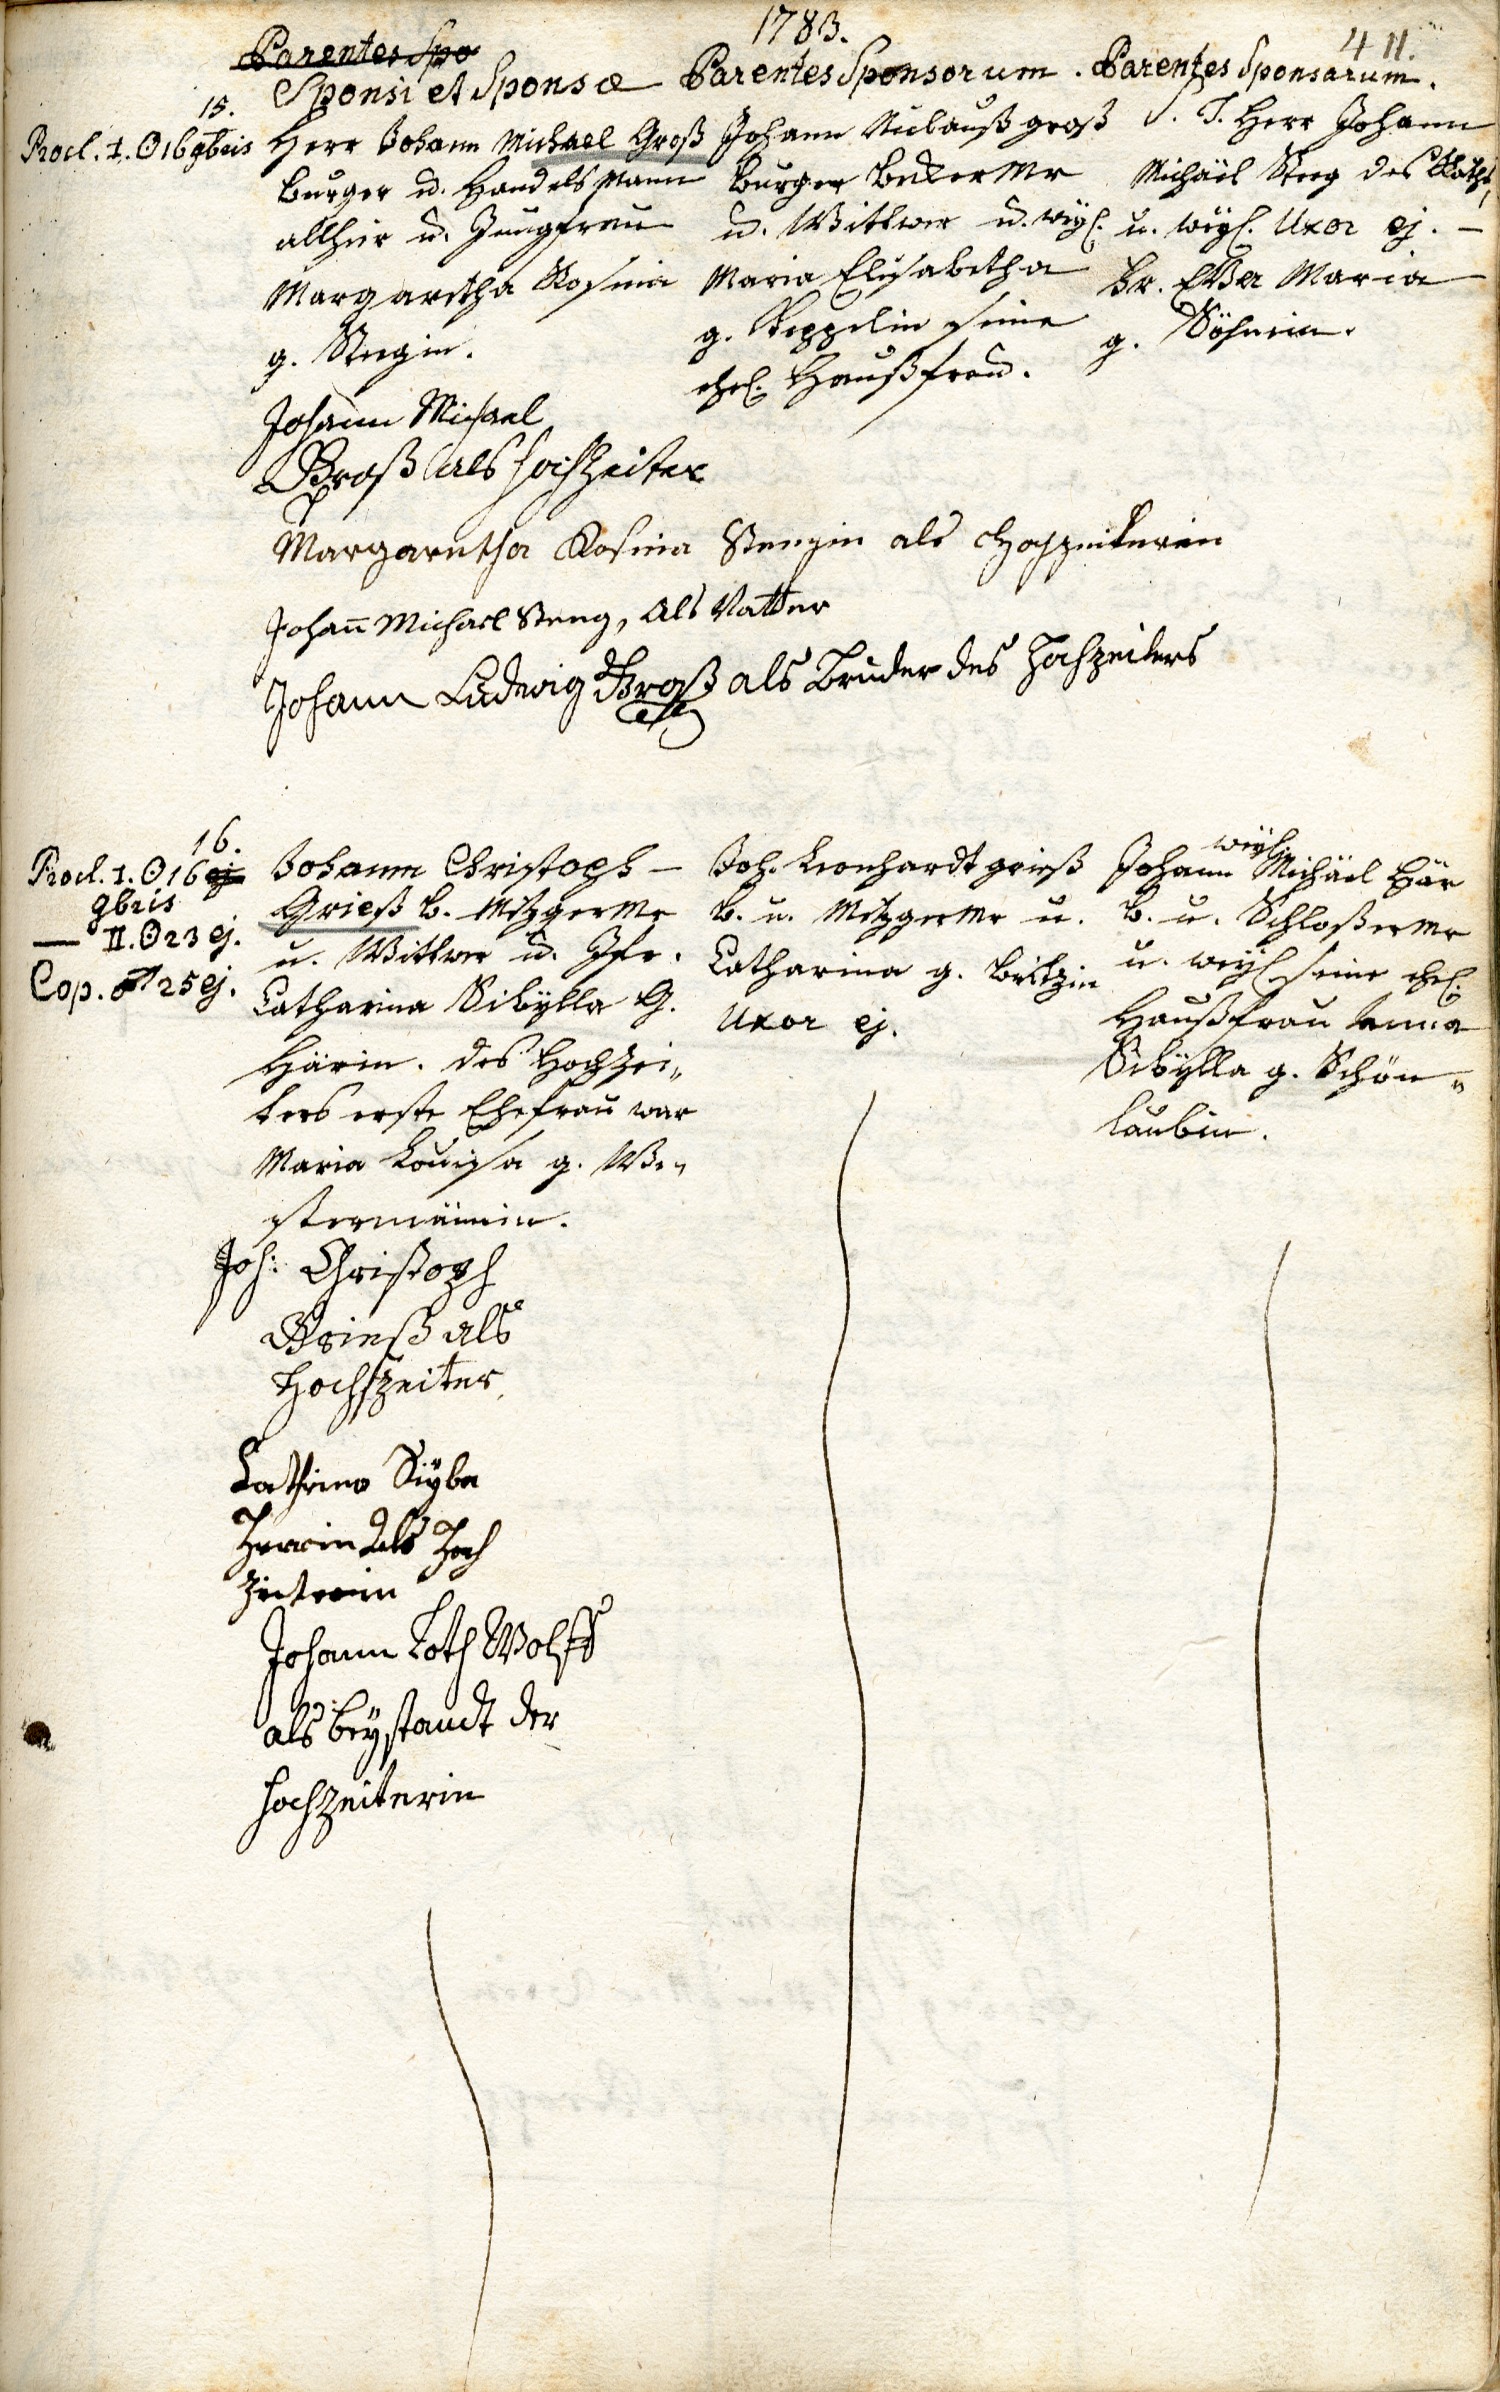 1783.
411.
Parentes Spo
Sponsi et Sponsæ
Parentes Sponsorum.
Parentes Sponsarum.
15.
Procl. I. ☉ 16 9bris
Herr Johann Michael Groß
Burger u. Handels Mann
allhier u. Jungfrau
Margaretha Rosina
g. Stegin.
Johann Niclauß groß
Burger Becker Mr
u. Wittwer u. weyl.
Maria Elisabetha
g. Keppelin seine
ehel. Haußfrau.
S. T. Herr Johann
Michäel Steg des Raths,
u. weyl. Uxor ej. —
Fr. Eva Maria
g. Böhmin.
Johann Michael
Groß als hochzeiter
Margaretha Rosina Stengin als Hochzeiterin
Johañ Michael Steng, als Vatter
Johann Ludwig Groß als Bruder des Hochzeiters
16.
Procl. I. ☉ 16 ej
9bris
— II. ☉ 23 ej.
Cop. ♂ 25 ej.
Johann Christoph —
Grieß b. Metzger Mr
u. Wittwer u. Jfr.
Catharina Sibÿlla G.
Härin. des Hochzei„
ters erste Ehefrau war
Maria Louisa g. We„
stermännin.
Joh. Leonhardt grieß
b. u. Metzger Mr u.
Catharina g. Britzin
Uxor ej.
weyl.
Johann Michäel Här
b. u. Schloßer Mr
u. weyl. seine ehel.
Haußfrau Anna
Sibÿlla g. Schön„
laubin.
Joh: Christoph
Grieß als
Hochzeiter
Cathrina Siyba
Herrin als Hoch
zeiterin
Johann Loth Wolff
als beystandt der
hochzeiterin